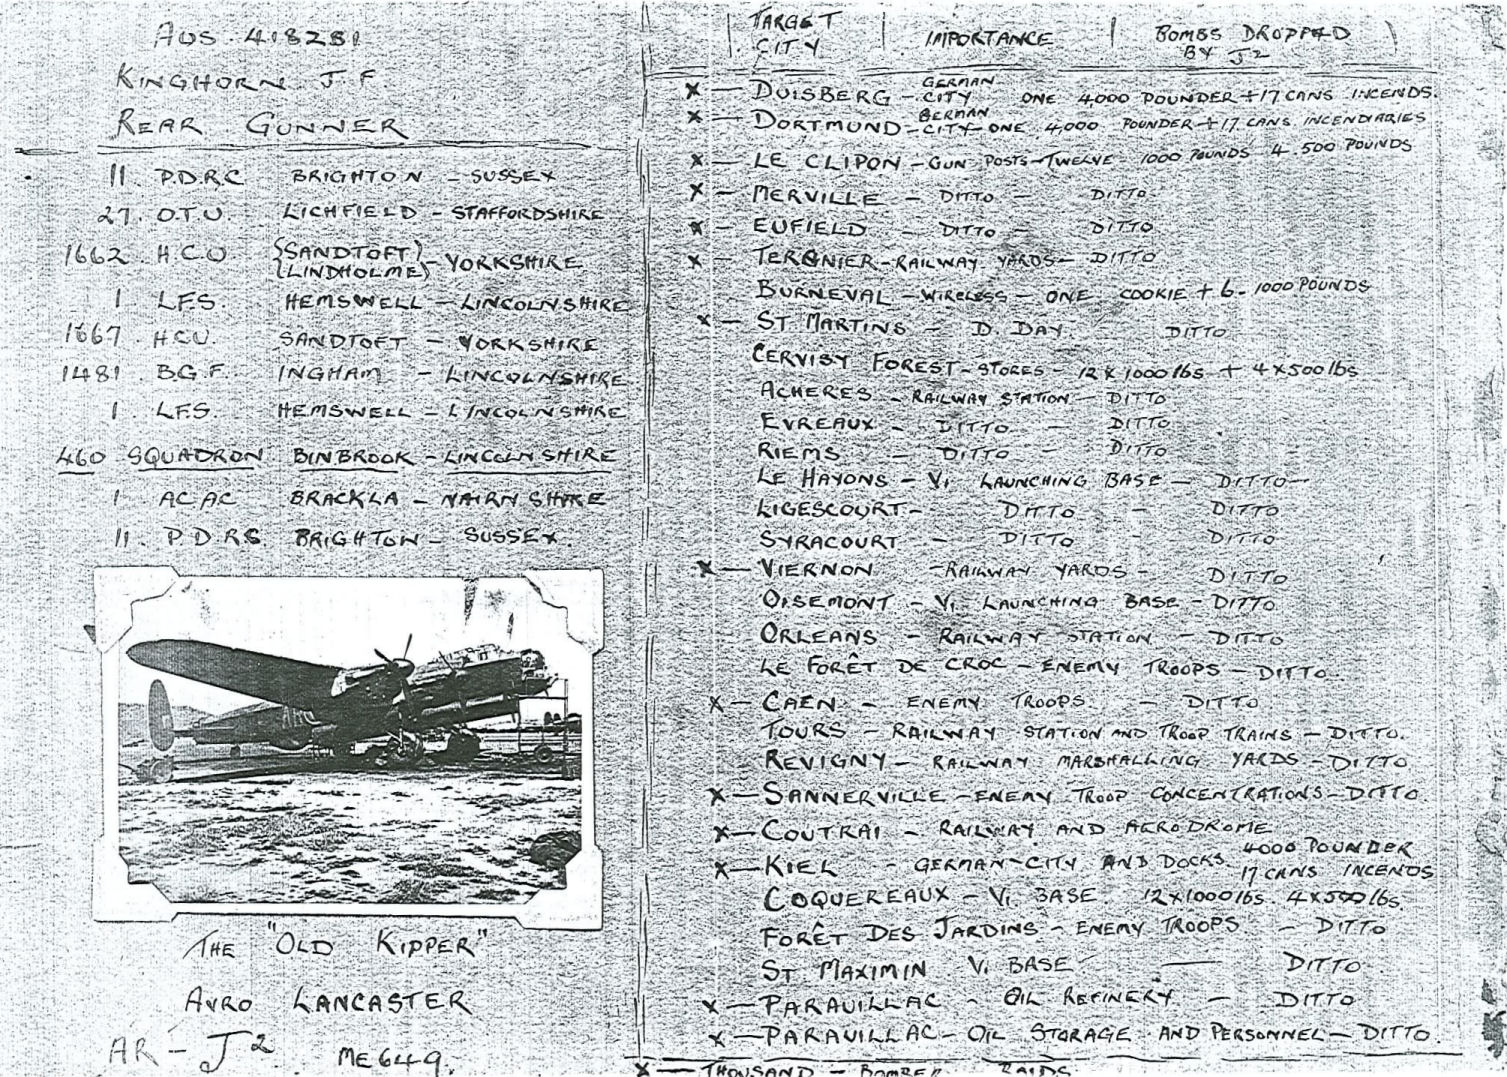 AUS. 418281
KINGHORN J F.
REAR GUNNER
11. P.D.R.C BRIGHTON - SUSSEX
27. O.T.U. LICHFIELD - STAFFORDSHIRE
1662. H.C.U {SANDTOFT} {LINDHOLME} - YORKSHIRE
1 L.F.S. HEMSWELL - LINCOLNSHIRE
1667 H.C.U. SANDTOFT - YORKSHIRE
1481. B.G.F. INGHAM - LINCOLNSHIRE
1. L.F.S. HEMSWELL - LINCOLNSHIRE
460 SQUADRON BINBROOK - LINCOLNSHIRE
1 AC AC BRACKLA - NAIRNSHIRE
11. P D RS BRIGHTON - SUSSEX.
THE "OLD KIPPER"
AVRO LANCASTER
AR - J² ME649.
TARGET CITY | IMPORTANCE | BOMBS DROPPED BY J²
X - DUISBERG - GERMAN CITY ONE 4000 POUNDER + 17 CANS INCENDS.
X - DORTMUND - GERMAN CITY - ONE 4,000 POUNDER + 17 CANS INCENDIARIES
X - LE CLIPON - GUN POSTS - TWELVE 1000 POUNDS 4.500 POUNDS
X - MERVILLE - DITTO - DITTO
X - EUFIELD - DITTO - DITTO
X - TERGNIER - RAILWAY YARDS - DITTO
BURNEVAL - WIRELESS - ONE COOKIE + 6 - 1000 POUNDS
X - ST MARTINS - D. DAY. DITTO
CERVISY FOREST - STORES - 12 X 1000 lbs + 4 X 500 lbs
ACHERES - RAILWAY STATION - DITTO
EVREAUX - DITTO - DITTO
RIEMS - DITTO - DITTO
LE HAYONS - V1 LAUNCHING BASE - DITTO -
LIGESCOURT - DITTO - DITTO
SYRACOURT - DITTO - DITTO
X - VIERNON - RAILWAY YARDS - DITTO
OISEMONT - V1 LAUNCHING BASE - DITTO
ORLEANS - RAILWAY STATION - DITTO
LE FORÊT DE CROC - ENEMY TROOPS - DITTO.
X - CAEN - ENEMY TROOPS. - DITTO
TOURS - RAILWAY STATION AND TROOP TRAINS - DITTO.
REVIGNY - RAILWAY MARSHALLING YARDS - DITTO
X - SANNERVILLE - ENEMY TROOP CONCENTRATIONS - DITTO.
X - COUTRAI - RAILWAY AND AERODROME
X - KIEL - GERMAN - CITY AND DOCKS. 4000 POUNDER 17 CANS INCENDS
COQUEREAUX - V1 BASE. 12 X 1000 lbs 4 X 500 lbs.
FORÊT DES JARDINS - ENEMY TROOPS - DITTO
ST MAXIMIN V1 BASE - DITTO
X - PARAUILLAC - OIL REFINERY - DITTO
X - PARAUILLAC - OIL STORAGE AND PERSONNEL - DITTO.
X - THOUSAND - BOMBER RAIDS